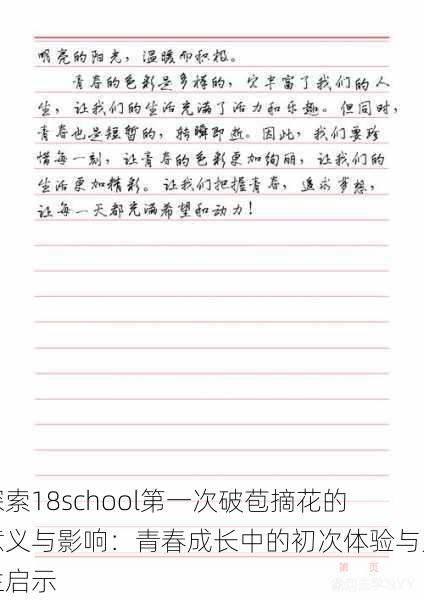 明亮的阳光，温暖而积极。
青春的色彩是多样的，它丰富了我们的人
生，让我们的生活充满了活力和乐趣。但同时，
青春也是短暂的，转瞬即逝。因此，我们要珍
惜每一刻，让青春的色彩更加绚丽，让我们的
生活更加精彩。让我们把握青春，追求梦想，
让每一天都充满希望和动力！
第 页
探索18school第一次破苞摘花的
意义与影响：青春成长中的初次体验与
生启示